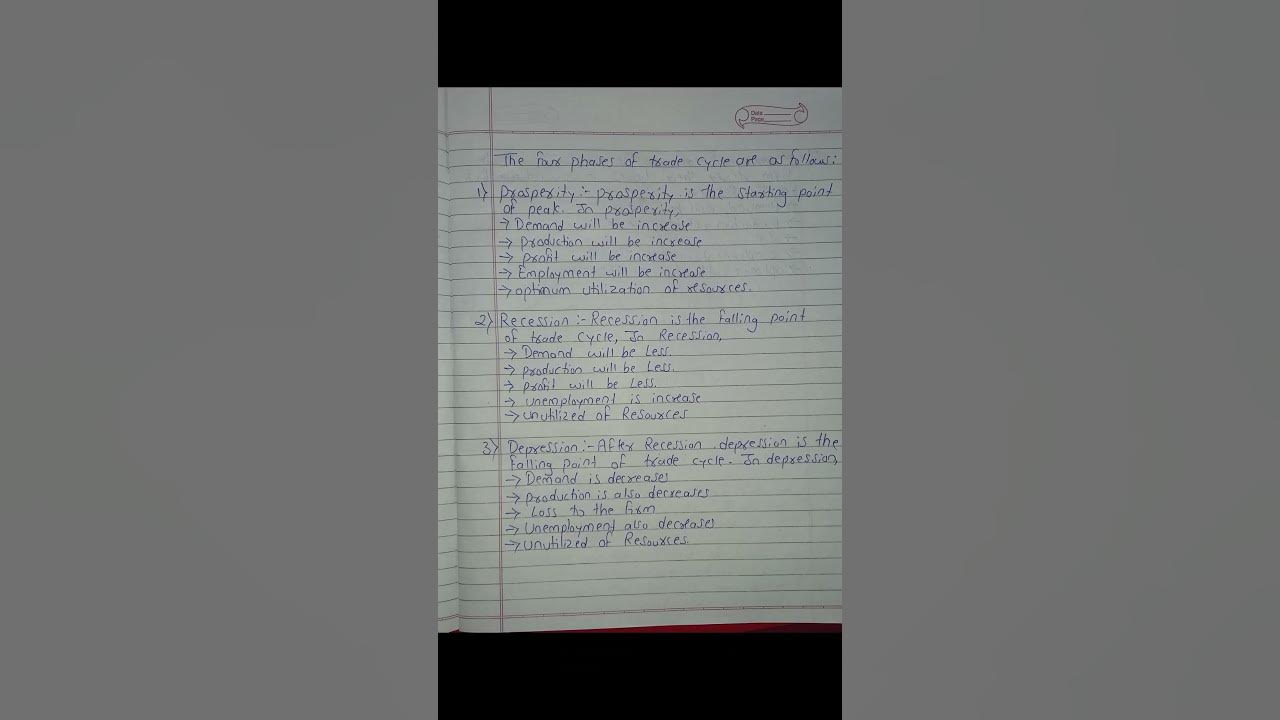 Date
Page
The four phases of trade cycle are as follows:
1) Prosperity :- prosperity is the starting point
of peak. In prosperity,
→ Demand will be increase
→ production will be increase
→ profit will be increase
→ Employment will be increase
→ optimum utilization of resources.
2) Recession :- Recession is the falling point
of trade cycle, In Recession,
→ Demand will be Less.
→ production will be Less.
→ profit will be Less.
→ unemployment is increase
→ unutilized of Resources
3) Depression :- After Recession depression is the
falling point of trade cycle. In depression,
→ Demand is decreases
→ production is also decreases
→ Loss to the firm
→ Unemployment also decreases
→ unutilized of Resources.